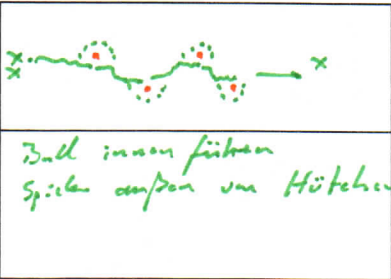 Ball innen führen
Spieler außen von Hütchen